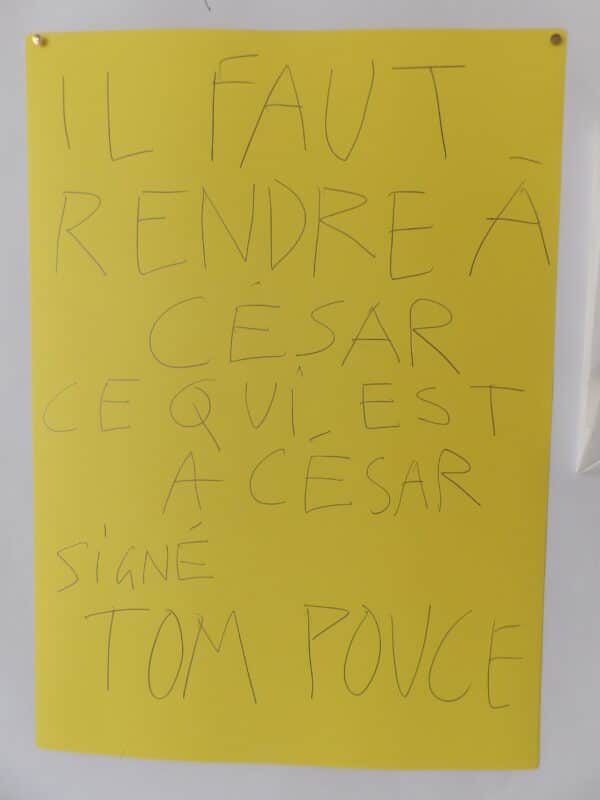 IL FAUT
RENDRE À
CÉSAR
CE QUI EST
A CÉSAR
SIGNÉ
TOM POUCE